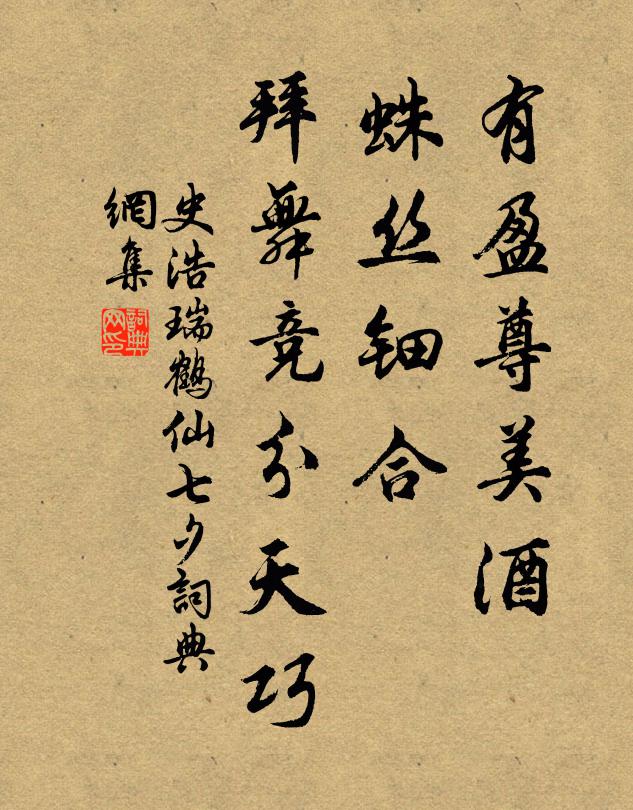 有盈尊美酒
蛛丝钿合
拜舞竞分天巧
史浩瑞鶴仙七夕詞典
網集
詞典
网印